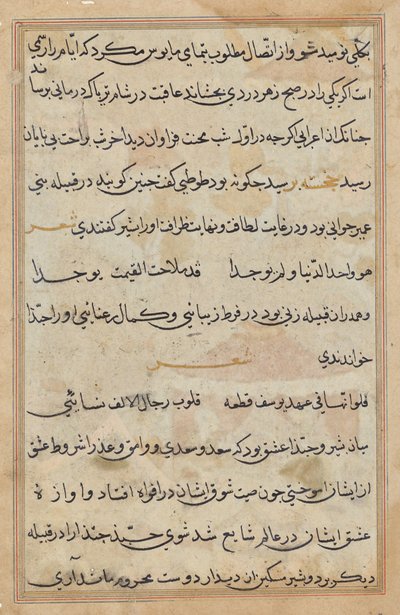 بکلی نومید شو و از اتصال مطلوب بتمای مایوس مکرد که ایام را رسمی
است اگر یکی را در صبح زهر دردی بچشاند عاقبت در شام تریاک درمانی برساند
چنانک ان اعرابی اگرچه در اول شب محنت فراوان دید اخر شب براحت بی پایان
رسید خجسته پرسید چگونه بود طوطی کفت چنین کویند در قبیله بنی
عمیر جوانی بود در غایت لطافت و نهایت ظرافت او را بشیر کفتندی شعر
هو واحد الدنیا و لن یوجدا قد ملاحت القیمت یوجدا
و همدران قبیله زنی بود در فرط زیبائی و کمال رعنائی او را جندا
خواندندی
شعر
فلو انها فی عهد یوسف قطعه قلوب رجال لا الف نسائی
میان بشیر و جندا عشق بود که سعد و سعدی و وامق و عذرا شروط عشق
از ایشان اموختی چون صیت شوق ایشان در افواه افتاد و اوازهٔ
عشق ایشان در عالم شایع شد شوی جندا را در قبیله
دیکر برد و بشیر مسکین از دیدار دوست محروم ماند آری